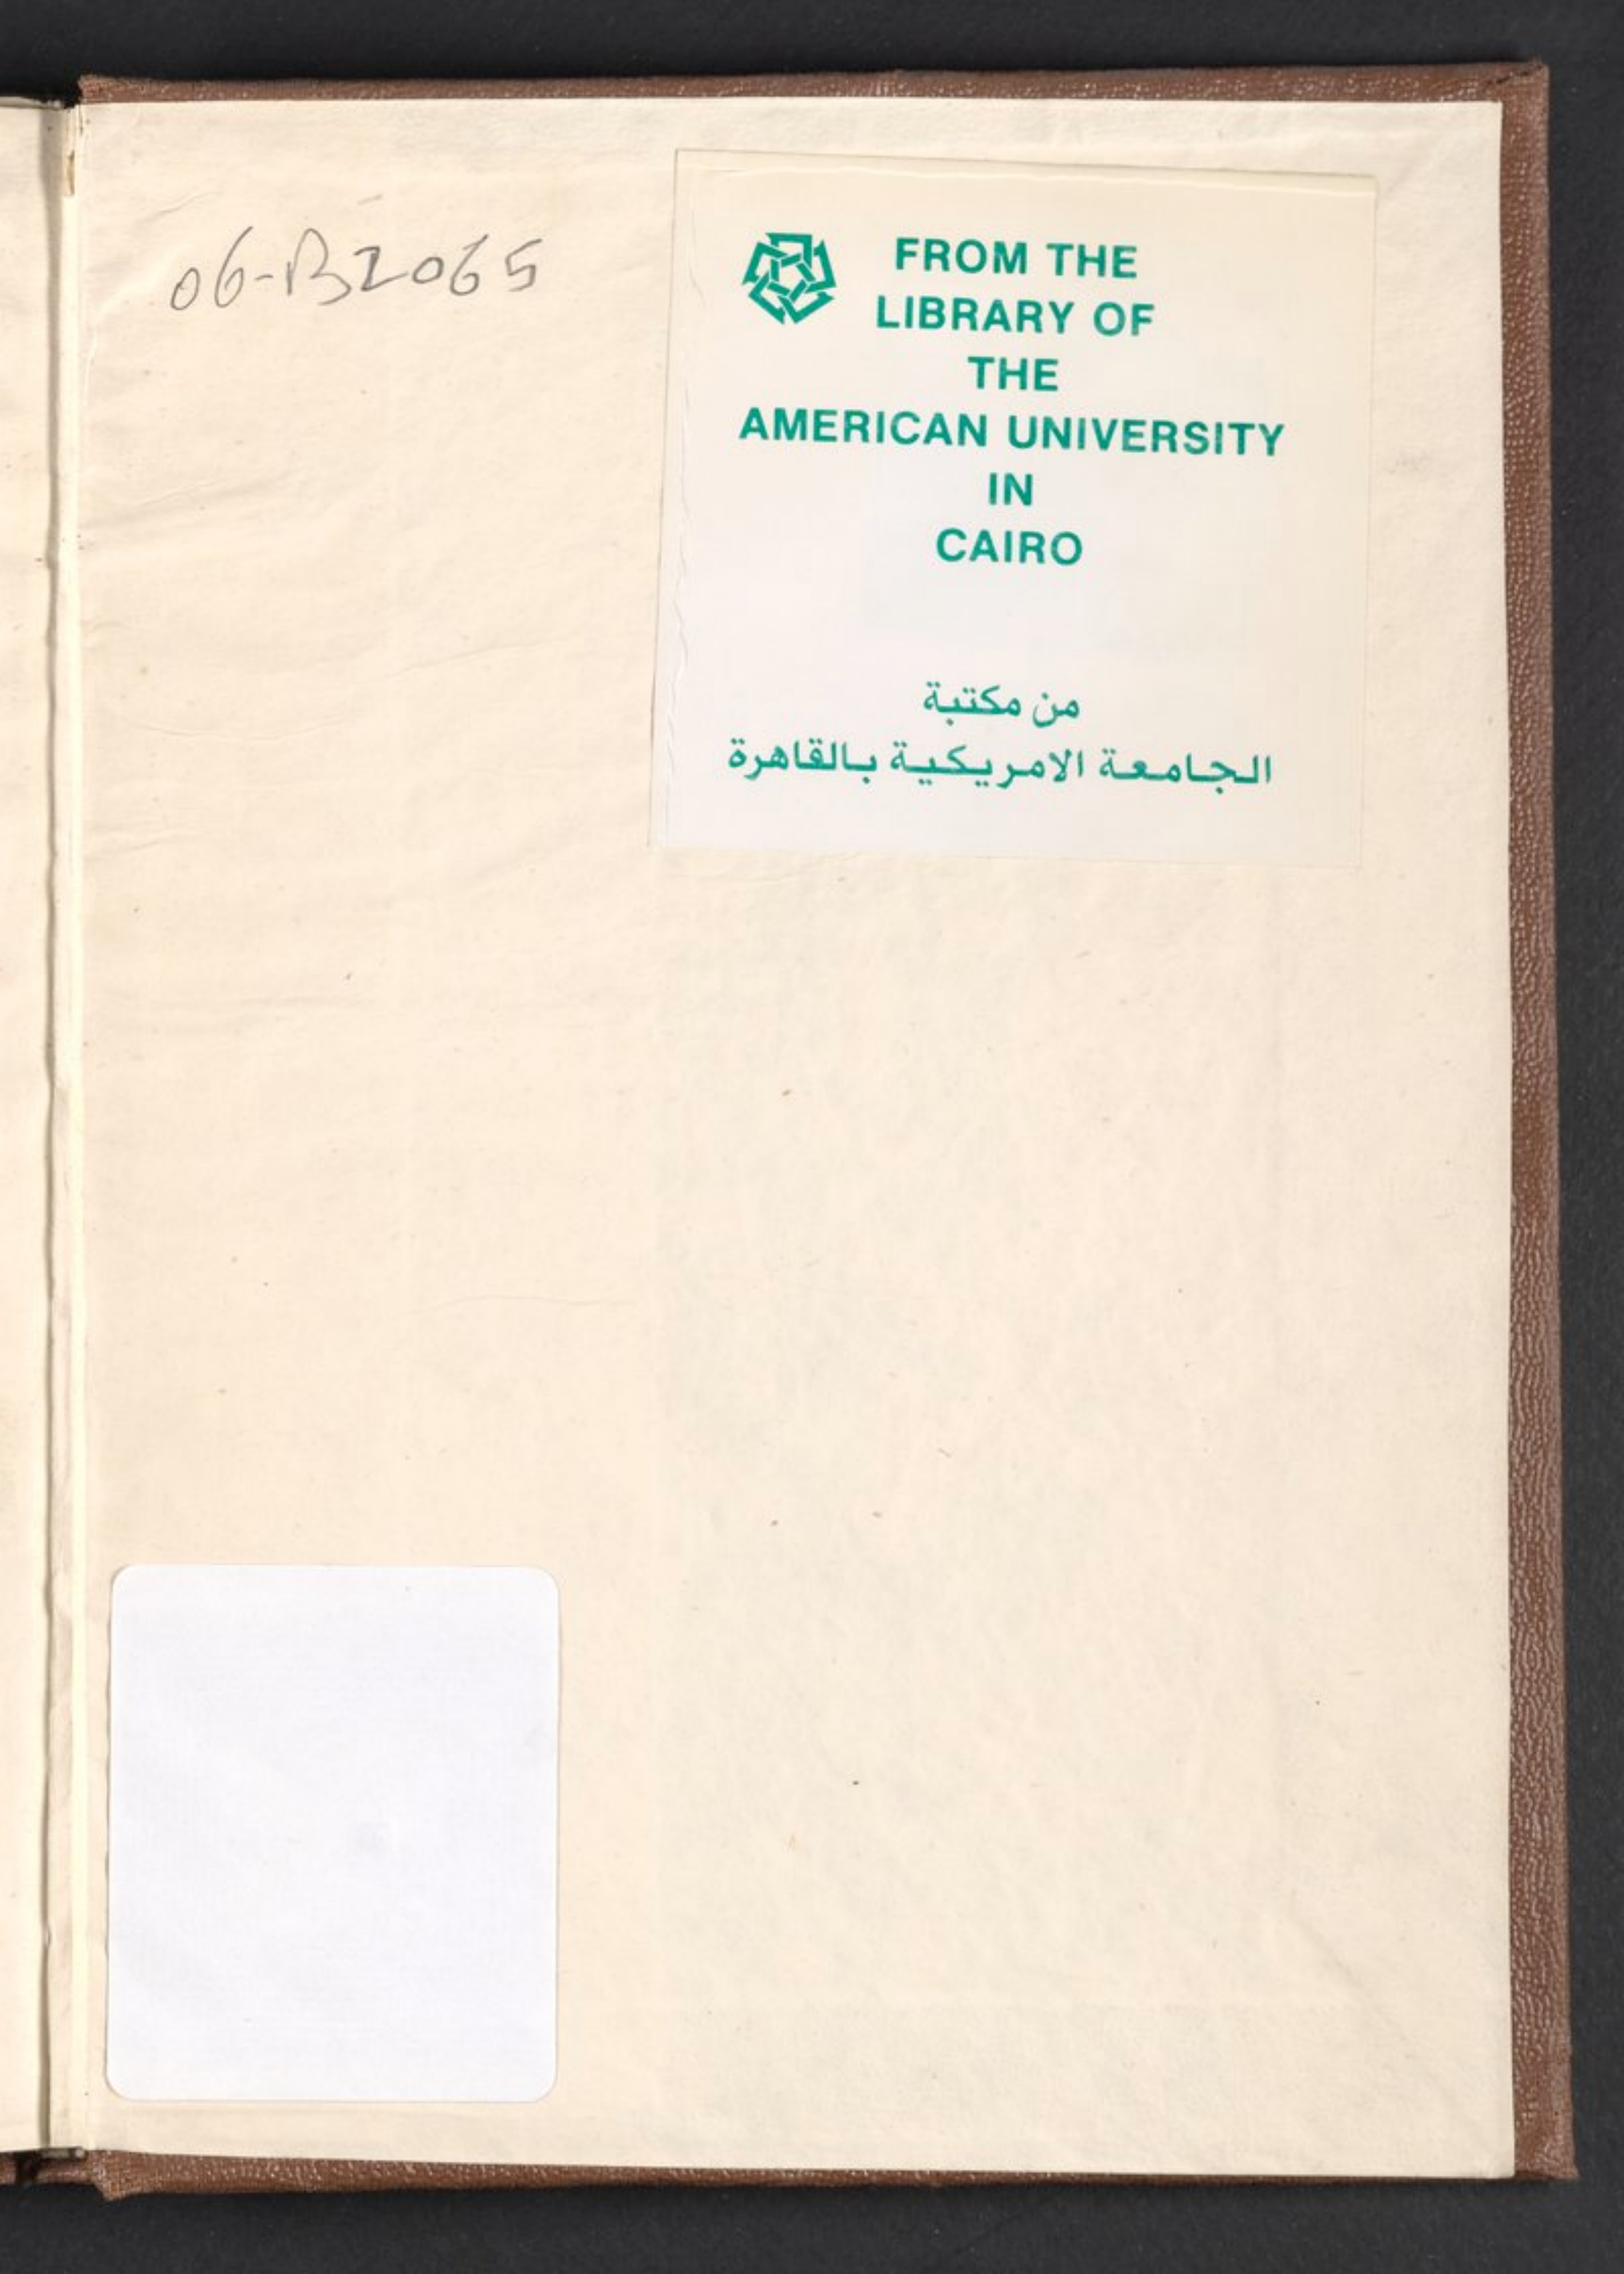 06-B2065
FROM THE
LIBRARY OF
THE
AMERICAN UNIVERSITY
IN
CAIRO
من مكتبة
الجامعة الامريكية بالقاهرة